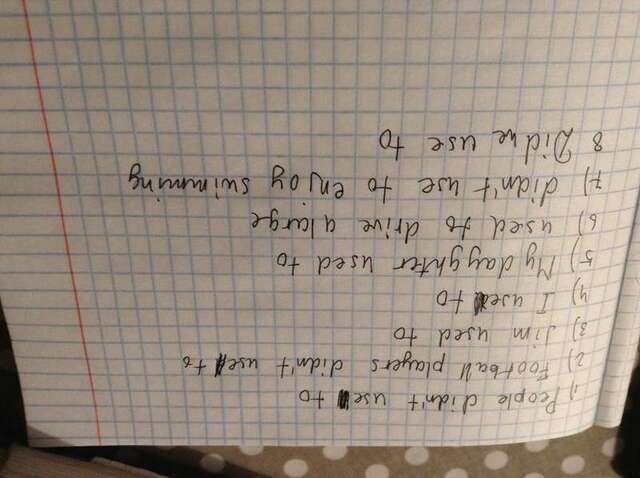 1) People didn't use to
2) Football players didn't use to
3) Jim used to
4) I used to
5) My dayghter used to
6) used to drive a large
7) didn't use to enjoy swimming
8 Did we use to